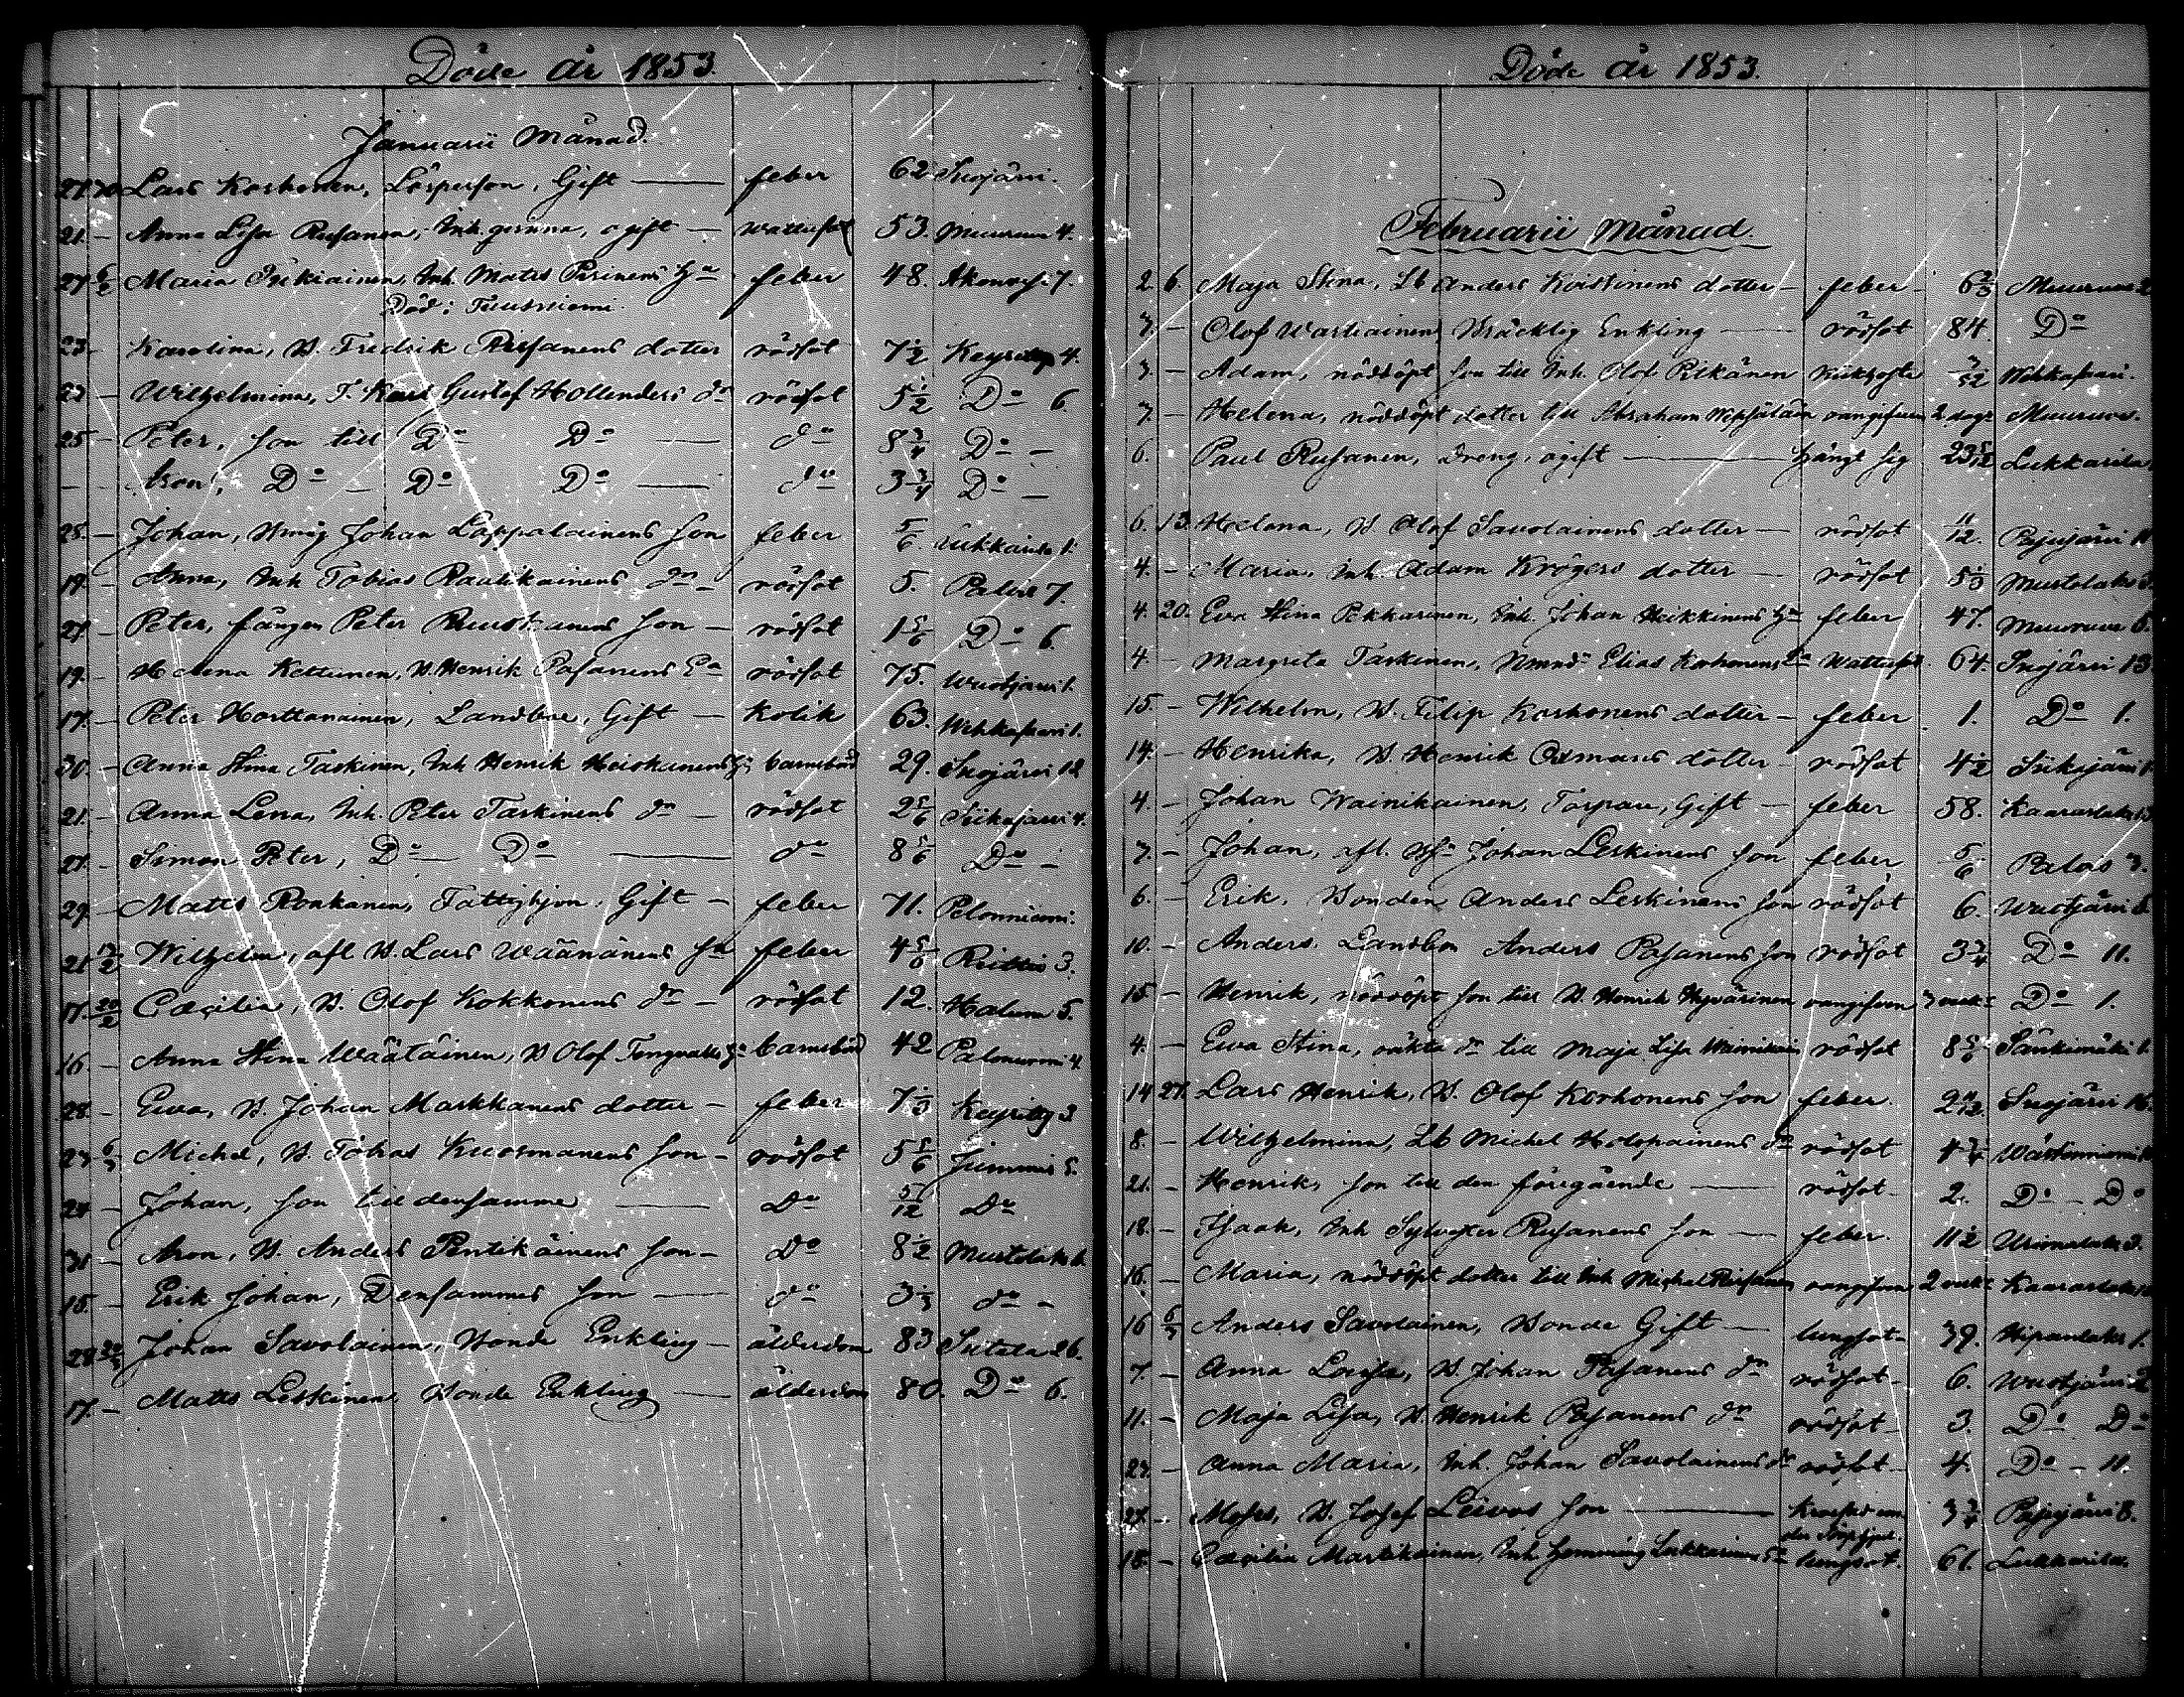 Döde år 1853.
Januarii Månad.
27. 30. Lars Korhonen, Lösperson, Gift — feber 62 Suojärvi.
21. — Anna Lisa Rusanen, Inh. ogift — wattusot 53. Muuruve 4.
27 6/2 Maria Inh. Matts Pirinens Ha feber 48. Akonvesi 7.
Död i Tuusniemi.
23 — Karolina, B. Fredrik Pirsanens dotter rödsot 7 1/2 4.
23 — Wilhelmina, T. Karl Gustaf Hollenders dr rödsot 5 1/2 Do 6.
25 — Peter, son till Do Do — do 8 3/4 Do —
— Aron, Do — Do Do — do 3 3/4 Do —
25. — Johan, Johan Lappalainens son feber 5/6 1.
19. — Anna, Inh Tobias Rautikainens dr — rödsot 5. Palois 7.
27. — Peter, fången Peter son — rödsot 1 5/6 Do 6.
19. — Helena Kettunen, B. Henrik Pasanens Ea rödsot 75. Wuotjärvi 1.
17. — Peter Horttanainen, Landboe, Gift — Kolik 63. Wehkasaari 1.
30. — Anna Stina Taskinen, Inh Henrik Heiskanens Ha barnsbörd 29. Suojärvi 12
21. — Anna Lena, Inh. Peter Taskinens dr — rödsot 2 5/6 Siikajärvi 4.
21. — Simon Peter, Do — Do — do 8 5/6 Do —
29. — Matts Ronkanen, Fattighjon, Gift — feber 71. Pelonniemi.
21 13/2 Wilhelm, afl B. Lars Wäänänens son feber 4 5/6 3.
17. 20/2 Cæcilia, B. Olof Kokkonens dr — rödsot 12. Haluna 5.
16. — Anna Stina Wäätäinen, B Olof Tengvalls Ha barnsbörd 42 Palonurmi 4
28 — Ewa, B. Johan Markkanens dotter — feber 7 1/3 3
23 6/3 Michel, B. Tobias Kuosmanens son — rödsot 5 5/6 Jummis 5.
24 — Johan, son till densamme — Do 5/12 Do
31 — Aron, B. Anders Pentikäinens son — Do 8 1/2 Mustolaks 6.
15. — Erik Johan, Densammes son — do 3 1/3 do —
28 20/3 Johan Savolainen, Bonde Enkling — ålderdom 83 Siitala 26.
17. — Matts Leskinen, Bonde Enkling — ålderdom 80. Do 6.
Döde år 1853.
Februarii Månad
2. 6. Maja Stina, Lb Anders Koistinens dotter — feber — 6 2/3 Muuruve 2
7. — Olof Wartiainen, Bräcklig Enkling — rödsot 84. Do
3. — Adam, nöddöpt son till Inh. Olof Pitkänen kikhosta 3/52 Wehkasaari.
7. — Helena, nöddöpt dotter till Abraham oangifven 2 dagr Muuruve.
6. Paul Rusanen, dreng, ogift — hängt sig 23 5/12 Lukkarila
6. 13. Helena, B Olof Savolainens dotter — rödsot 11/12. Pajujärvi
4. — Maria, Inh. Adam Krögers dotter — rödsot 5 1/3 Mustolaks
4. 20. Ewa Stina Pekkarinen, Inh. Johan Heikkinens Ha feber 47. Muuruve 6.
4. — Margreta Taskinen, Elias Korhonens Wattusot 64. Suojärvi 13
15. — Wilhelm, B. Filip Korhonens dotter — feber 1. Do 1.
14. — Henrika, B. Henrik Ortmans dotter — rödsot 4 1/2 Siikajärvi 1.
4. — Johan Wainikainen, Torpare, Gift — feber 58. Kaaraslaks
7. — Johan, afl. Johan Leskinens son feber 5/6 Palois 3.
6. — Erik, Bonden Anders Leskinens son rödsot 6. Wuotjärvi
10. — Anders, Landbon Anders Pasanens son rödsot 3 3/4 Do 11.
15. — Henrik, nöddöpt son till B. Henrik Hyvärinen oangifven 3 veck. Do 1.
4. — Ewa Stina, oäkta dr till Maja Lisa Wainikain. rödsot 8 5/6 Sänkimäki 1.
14 27. Lars Henrik, B. Olof Korhonens son feber. 2 11/12. Suojärvi 16.
8. — Wilhelmina, Lb Michel Holopainens dr rödsot 4 3/4
21. — Henrik, son till den föregående — rödsot — 2. Do — Do
18. — Isaak, Inh Sylvester Rusanens son — feber. 11 1/2 3.
16. — Maria, nöddöpt dotter till Inh Michel Pirsanen oangifven 2 veck Kaaraslaks
16 6/3 Anders Savolainen, Bonde Gift — lungsot — 39. Hipanlaks 1.
7. — Anna Lovisa, B. Johan Pasanens dr rödsot — 6. Wuotjärvi 2
11. — Maja Lisa, B. Henrik Pasanens dr rödsot — 3. Do Do
23. — Anna Maria, Inh. Johan Savolainens dr rödsot — 4. Do — 11.
27. — Moses, B. Josef Leivos son — 3 3/4 Pajujärvi 8.
18. — Cæcilia Martikainen, Inh Henning Lukkarinens Ea lungsot. 61. Lukkarila.